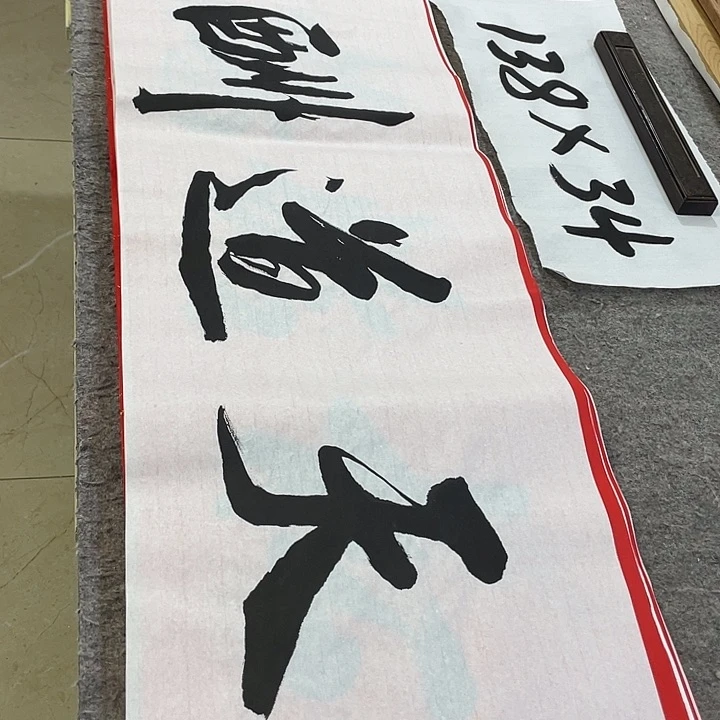 天道酬
138×34